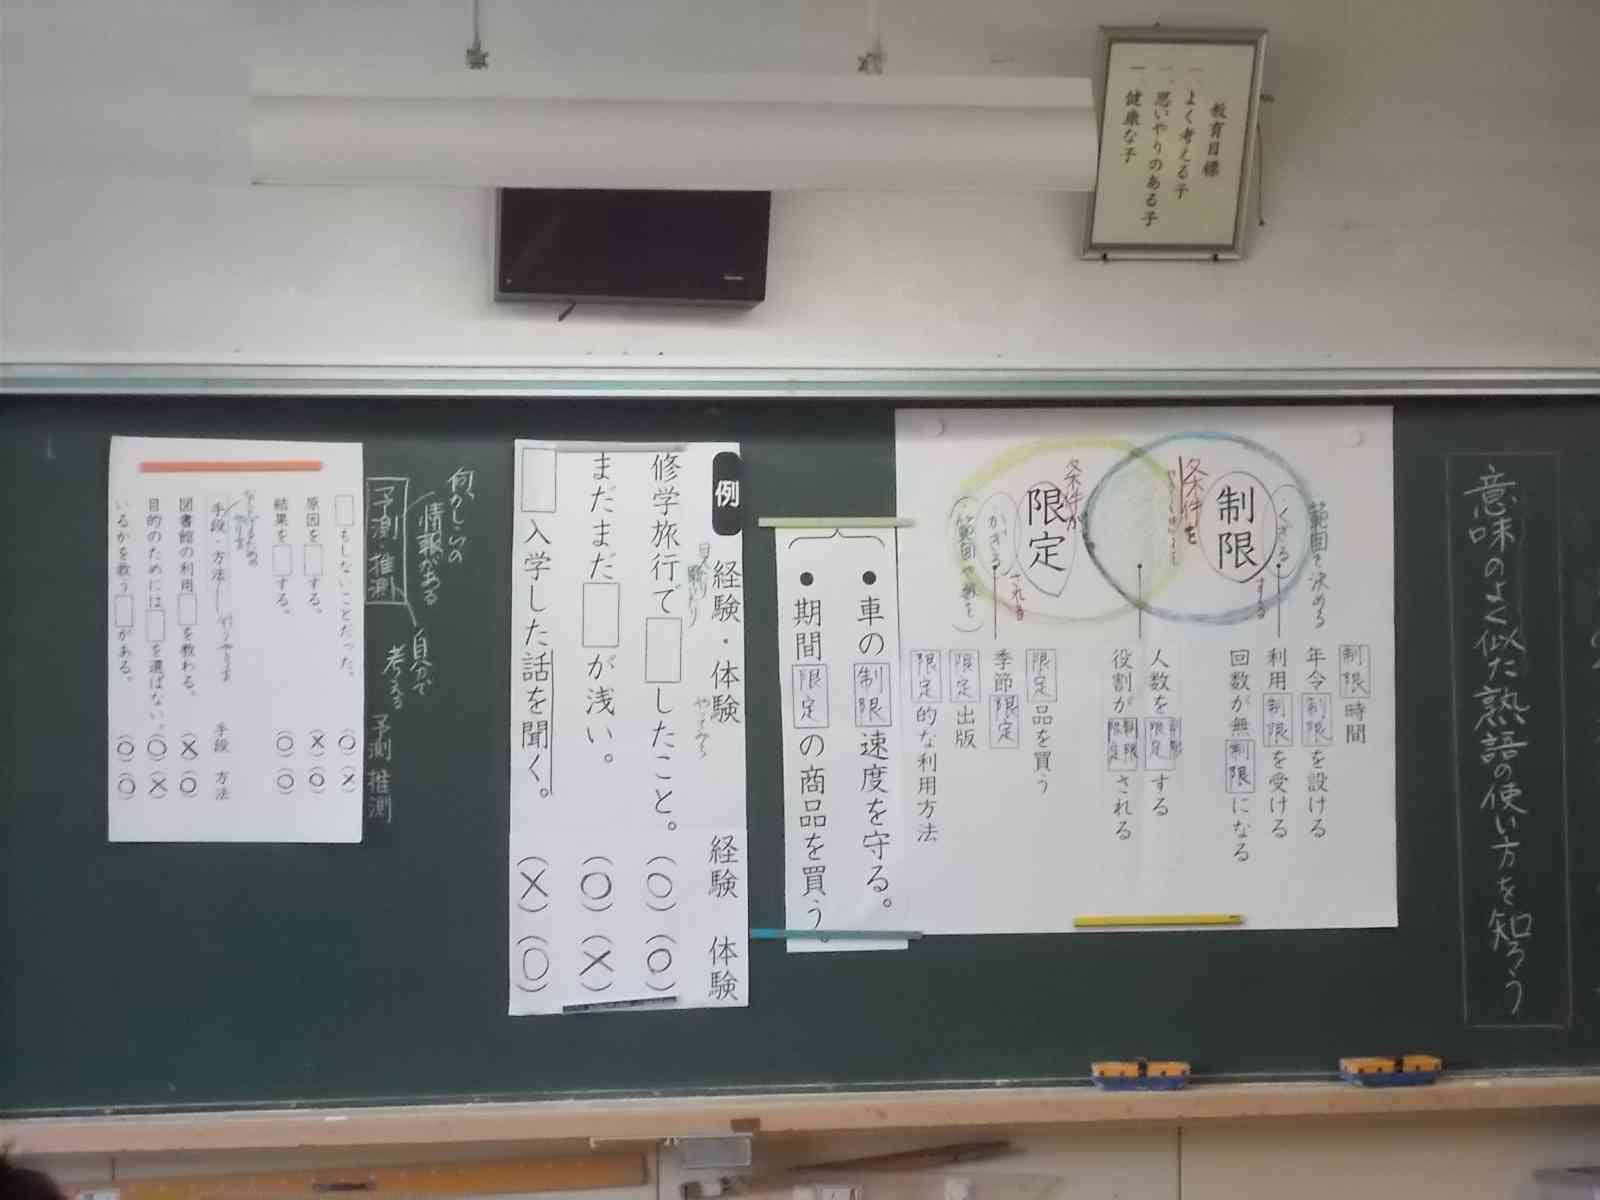 教育目標
一、よく考える子
一、思いやりのある子
一、健康な子
意味のよく似た熟語の使い方を知ろう
範囲を決める
くぎる
制限
する
条件を
条件が
限定
される
かぎる
(範囲や数を)
制限時間
年令制限を設ける
利用制限を受ける
回数が無制限になる
人数を制限限定する
役割が制限限定される
限定品を買う
季節限定
限定出版
限定的な利用方法
●車の制限速度を守る。
●期間限定の商品を買う。
例 経験・体験 経験 体験
見たり聞いたり
やってみる
修学旅行で□したこと。(○)(○)
まだまだ□が浅い。(○)(×)
□入学した話を聞く。(×)(○)
何かしらの
情報がある
自分で
考える
予測 推測
予測 推測
□もしないことだった。(○)(×)
原因を□する。(×)(○)
結果を□する。(○)(○)
手段・方法 手段 方法
図書館の利用□を教わる。(×)(○)
目的のためには□を選ばない。(○)(×)
いるかを救う□がある。(○)(○)